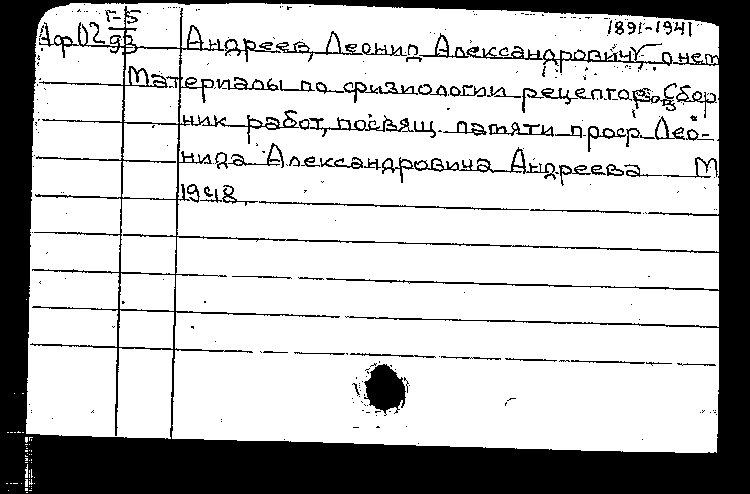 1891-1941
Аф02 1-5
93
Андреев, Леонид Александрович, о нем
Материалы по физиологии рецепторов. Сбор-
ник работ, посвящ. памяти проф. Лео-
нида Александровича Андреева М
1948.